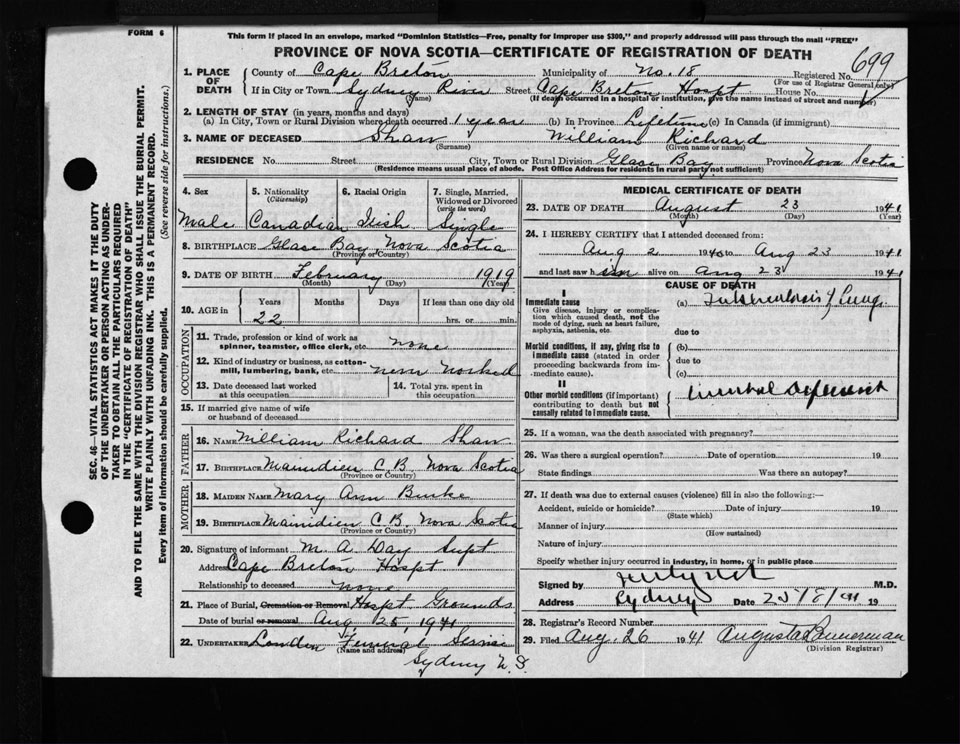 FORM 6
This form if placed in an envelope, marked "Dominion Statistics—Free, penalty for improper use $300," and properly addressed will pass through the mail "FREE"
PROVINCE OF NOVA SCOTIA—CERTIFICATE OF REGISTRATION OF DEATH
699
1. PLACE OF DEATH County of Cape Breton Municipality of No. 18 Registered No.
(For use of Registrar General only)
If in City or Town Sydney River Street Cape Breton Hospt House No.
(Name) (If death occurred in a hospital or institution, give the name instead of street and number)
2. LENGTH OF STAY (in years, months and days)
(a) In City, Town or Rural Division where death occurred 1 year (b) In Province Lifetime (c) In Canada (if immigrant)
3. NAME OF DECEASED Shaw William Richard
(Surname) (Given name or names)
RESIDENCE No. Street City, Town or Rural Division Glace Bay Province Nova Scotia
(Residence means usual place of abode. Post Office Address for residents in rural parts not sufficient)
4. Sex Male
5. Nationality (Citizenship) Canadian
6. Racial Origin Irish
7. Single, Married, Widowed or Divorced (write the word) Single
8. BIRTHPLACE Glace Bay, Nova Scotia
(Province or Country)
9. DATE OF BIRTH February 1919
(Month) (Day) (Year)
10. AGE in Years Months Days If less than one day old
22 hrs. or min.
OCCUPATION
11. Trade, profession or kind of work as spinner, teamster, office clerk, etc. none
12. Kind of industry or business, as cotton-mill, lumbering, bank, etc. never worked
13. Date deceased last worked at this occupation
14. Total yrs. spent in this occupation
15. If married give name of wife or husband of deceased
FATHER
16. NAME William Richard Shaw
17. BIRTHPLACE Mainidieu C.B. Nova Scotia
(Province or Country)
MOTHER
18. MAIDEN NAME Mary Ann Burke
19. BIRTHPLACE Mainidieu C.B. Nova Scotia
(Province or Country)
20. Signature of informant M. A. Day Supt
Address Cape Breton Hospt
Relationship to deceased none
21. Place of Burial, Cremation or Removal Hospt Grounds
Date of burial or removal Aug 25, 1941
22. UNDERTAKER London Funeral Service
(Name and address)
Sydney N.S.
MEDICAL CERTIFICATE OF DEATH
23. DATE OF DEATH August 23 1941
(Month) (Day) (Year)
24. I HEREBY CERTIFY that I attended deceased from:
Aug 2 1940 to Aug 23 1941
and last saw him alive on Aug 23 1941
CAUSE OF DEATH
I
Immediate cause
Give disease, injury or complication which caused death, not the mode of dying, such as heart failure, asphyxia, asthenia, etc.
(a) Tuberculosis of Lung
due to
Morbid conditions, if any, giving rise to immediate cause (stated in order proceeding backwards from immediate cause).
(b)
due to
(c)
II
Other morbid conditions (if important) contributing to death but not causally related to immediate cause.
mental
25. If a woman, was the death associated with pregnancy?
26. Was there a surgical operation? Date of operation 19
State findings Was there an autopsy?
27. If death was due to external causes (violence) fill in also the following:—
Accident, suicide or homicide? Date of injury 19
(State which)
Manner of injury
(How sustained)
Nature of injury
Specify whether injury occurred in industry, in home, or in public place
Signed by M.D.
Address Sydney Date 25/8/41 19
28. Registrar's Record Number
29. Filed Aug. 26 1941 Augusta Bannerman
(Division Registrar)
SEC. 46—VITAL STATISTICS ACT MAKES IT THE DUTY
OF THE UNDERTAKER OR PERSON ACTING AS UNDER-
TAKER TO OBTAIN ALL THE PARTICULARS REQUIRED
IN THE "CERTIFICATE OF REGISTRATION OF DEATH"
AND TO FILE THE SAME WITH THE DIVISION REGISTRAR WHO SHALL ISSUE THE BURIAL PERMIT.
WRITE PLAINLY WITH UNFADING INK. THIS IS A PERMANENT RECORD.
Every item of information should be carefully supplied. (See reverse side for instructions.)